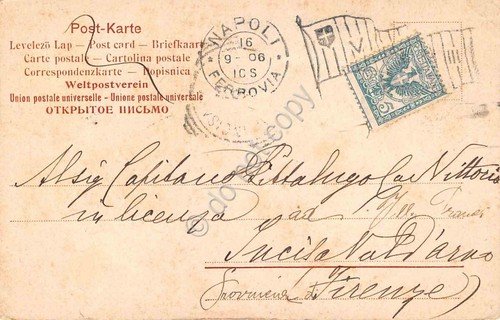 Post-Karte
Levelező Lap — Post card — Briefkaart
Carte postale — Cartolina postale
Correspondenzkarte — Dopisnica
Weltpostverein
Union postale universelle - Unione postale universale
ОТКРЫТОЕ ПИСЬМО
NAPOLI
16
9-06
10S
FERROVIA
Al Sig. Capitano Pittalugo Cav Vittorio
in licenza ad
Incisa Val d'Arno
(Provincia di Firenze)